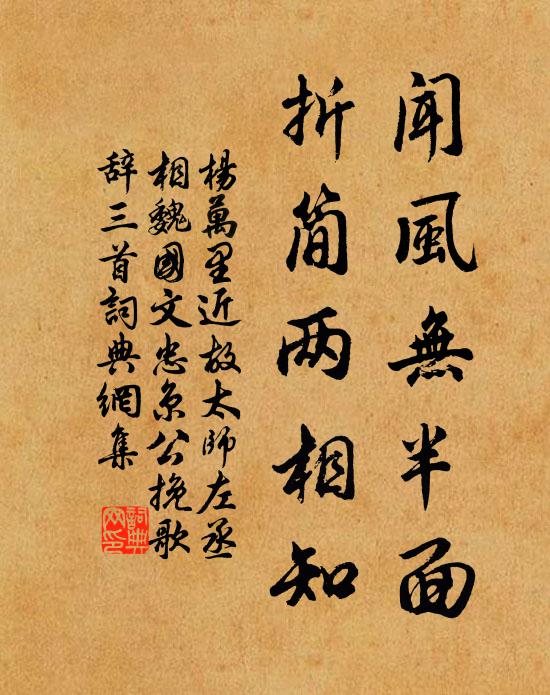 闻風無半面
折简两相知
楊萬里近故太師左丞
相魏國文忠京公挽歌
辞三首詞典網集
詞典网印